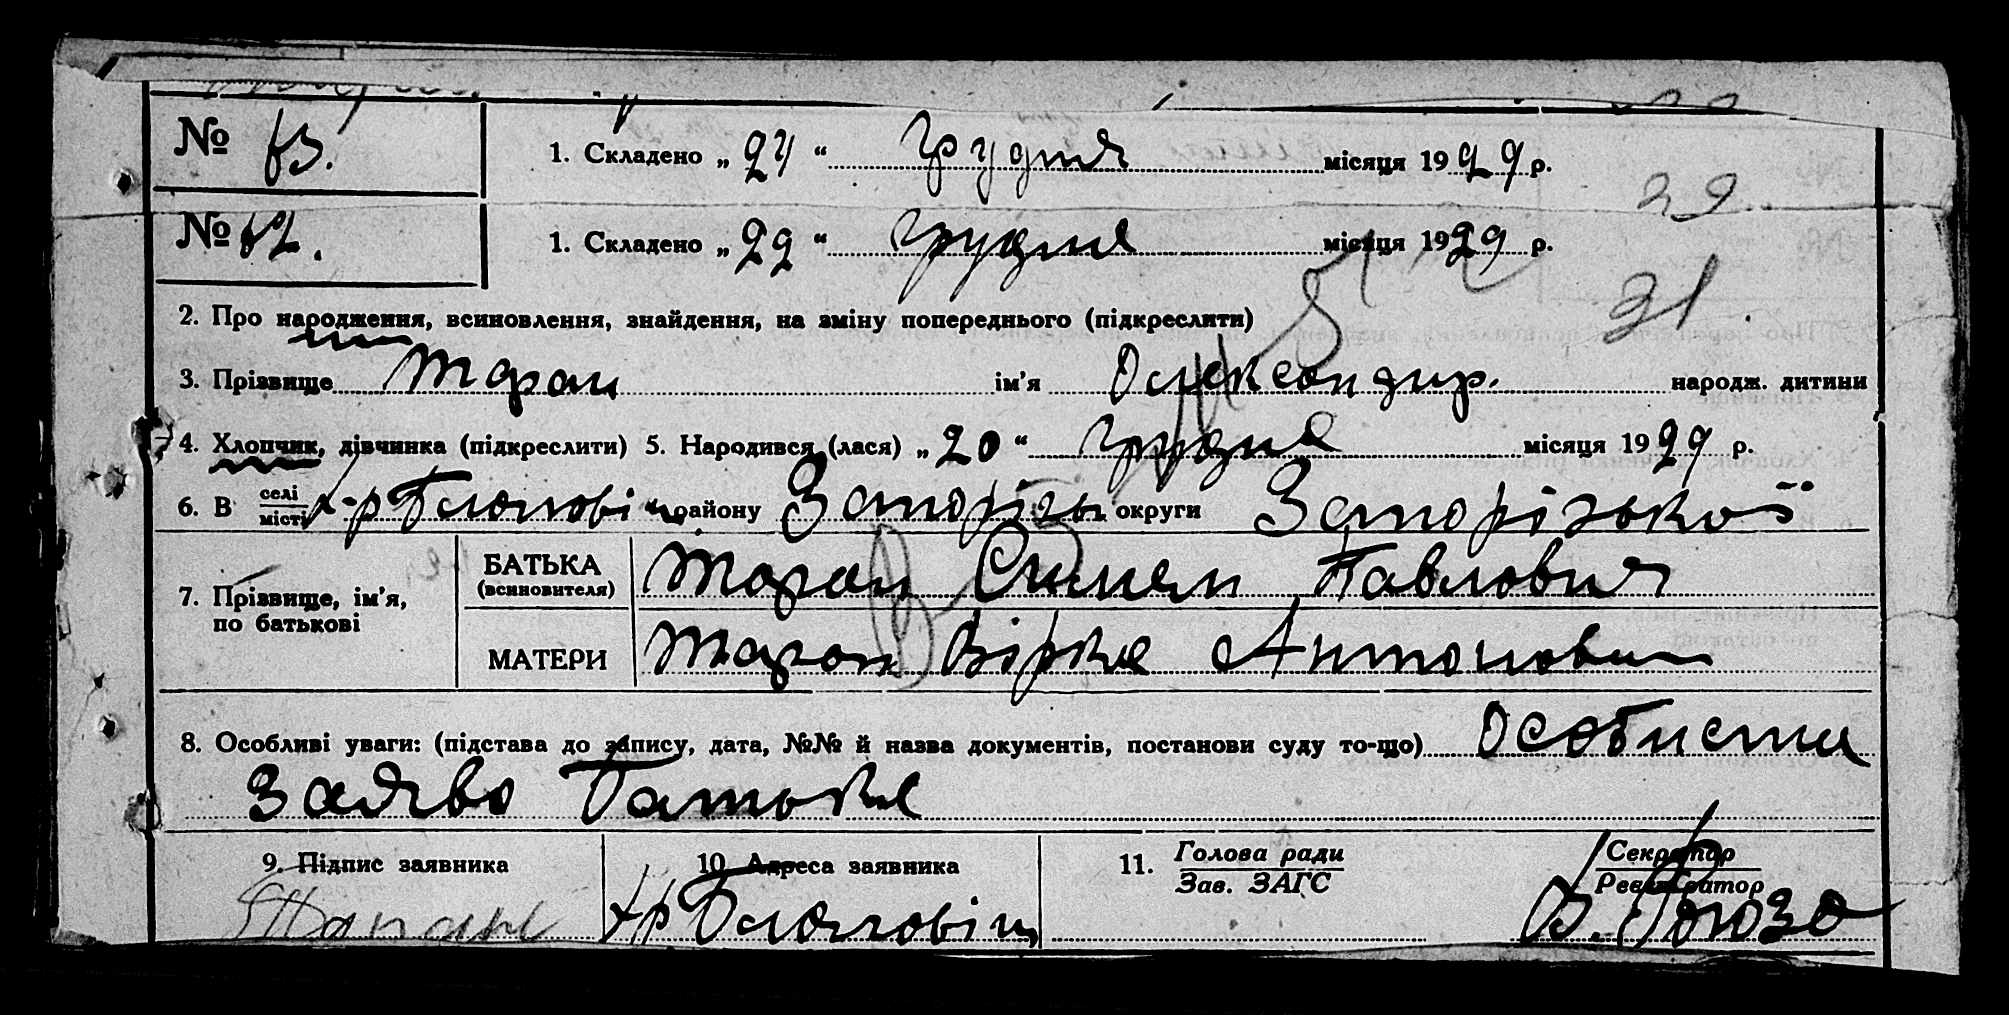 № 63.
1. Складено „ 24 “ Грудня місяця 1929 р.
29
№ 62.
1. Складено „ 29 “ Грудня місяця 1929 р.
31.
2. Про народження, всиновлення, знайдення, на зміну попереднього (підкреслити)
3. Прізвище Таран ім’я Олександир. народж. дитини
4. Хлопчик, дівчинка (підкреслити) 5. Народився (лася) „ 20 “ Грудня місяця 1929 р.
6. В селі місті х-р району Запорізьк округи Запорізької
7. Прізвище, ім’я, по батькові
БАТЬКА (всиновителя) Таран Симен Павлович
МАТЕРИ Таран Вірка Антонович
8. Особливі уваги: (підстава до запису, дата, №№ й назва документів, постанови суду то-що) Особисти
Заяво Батька
9. Підпис заявника 10. Адреса заявника 11. Голова ради Секретар
Зав. ЗАГС Реєстратор
Таран х-р